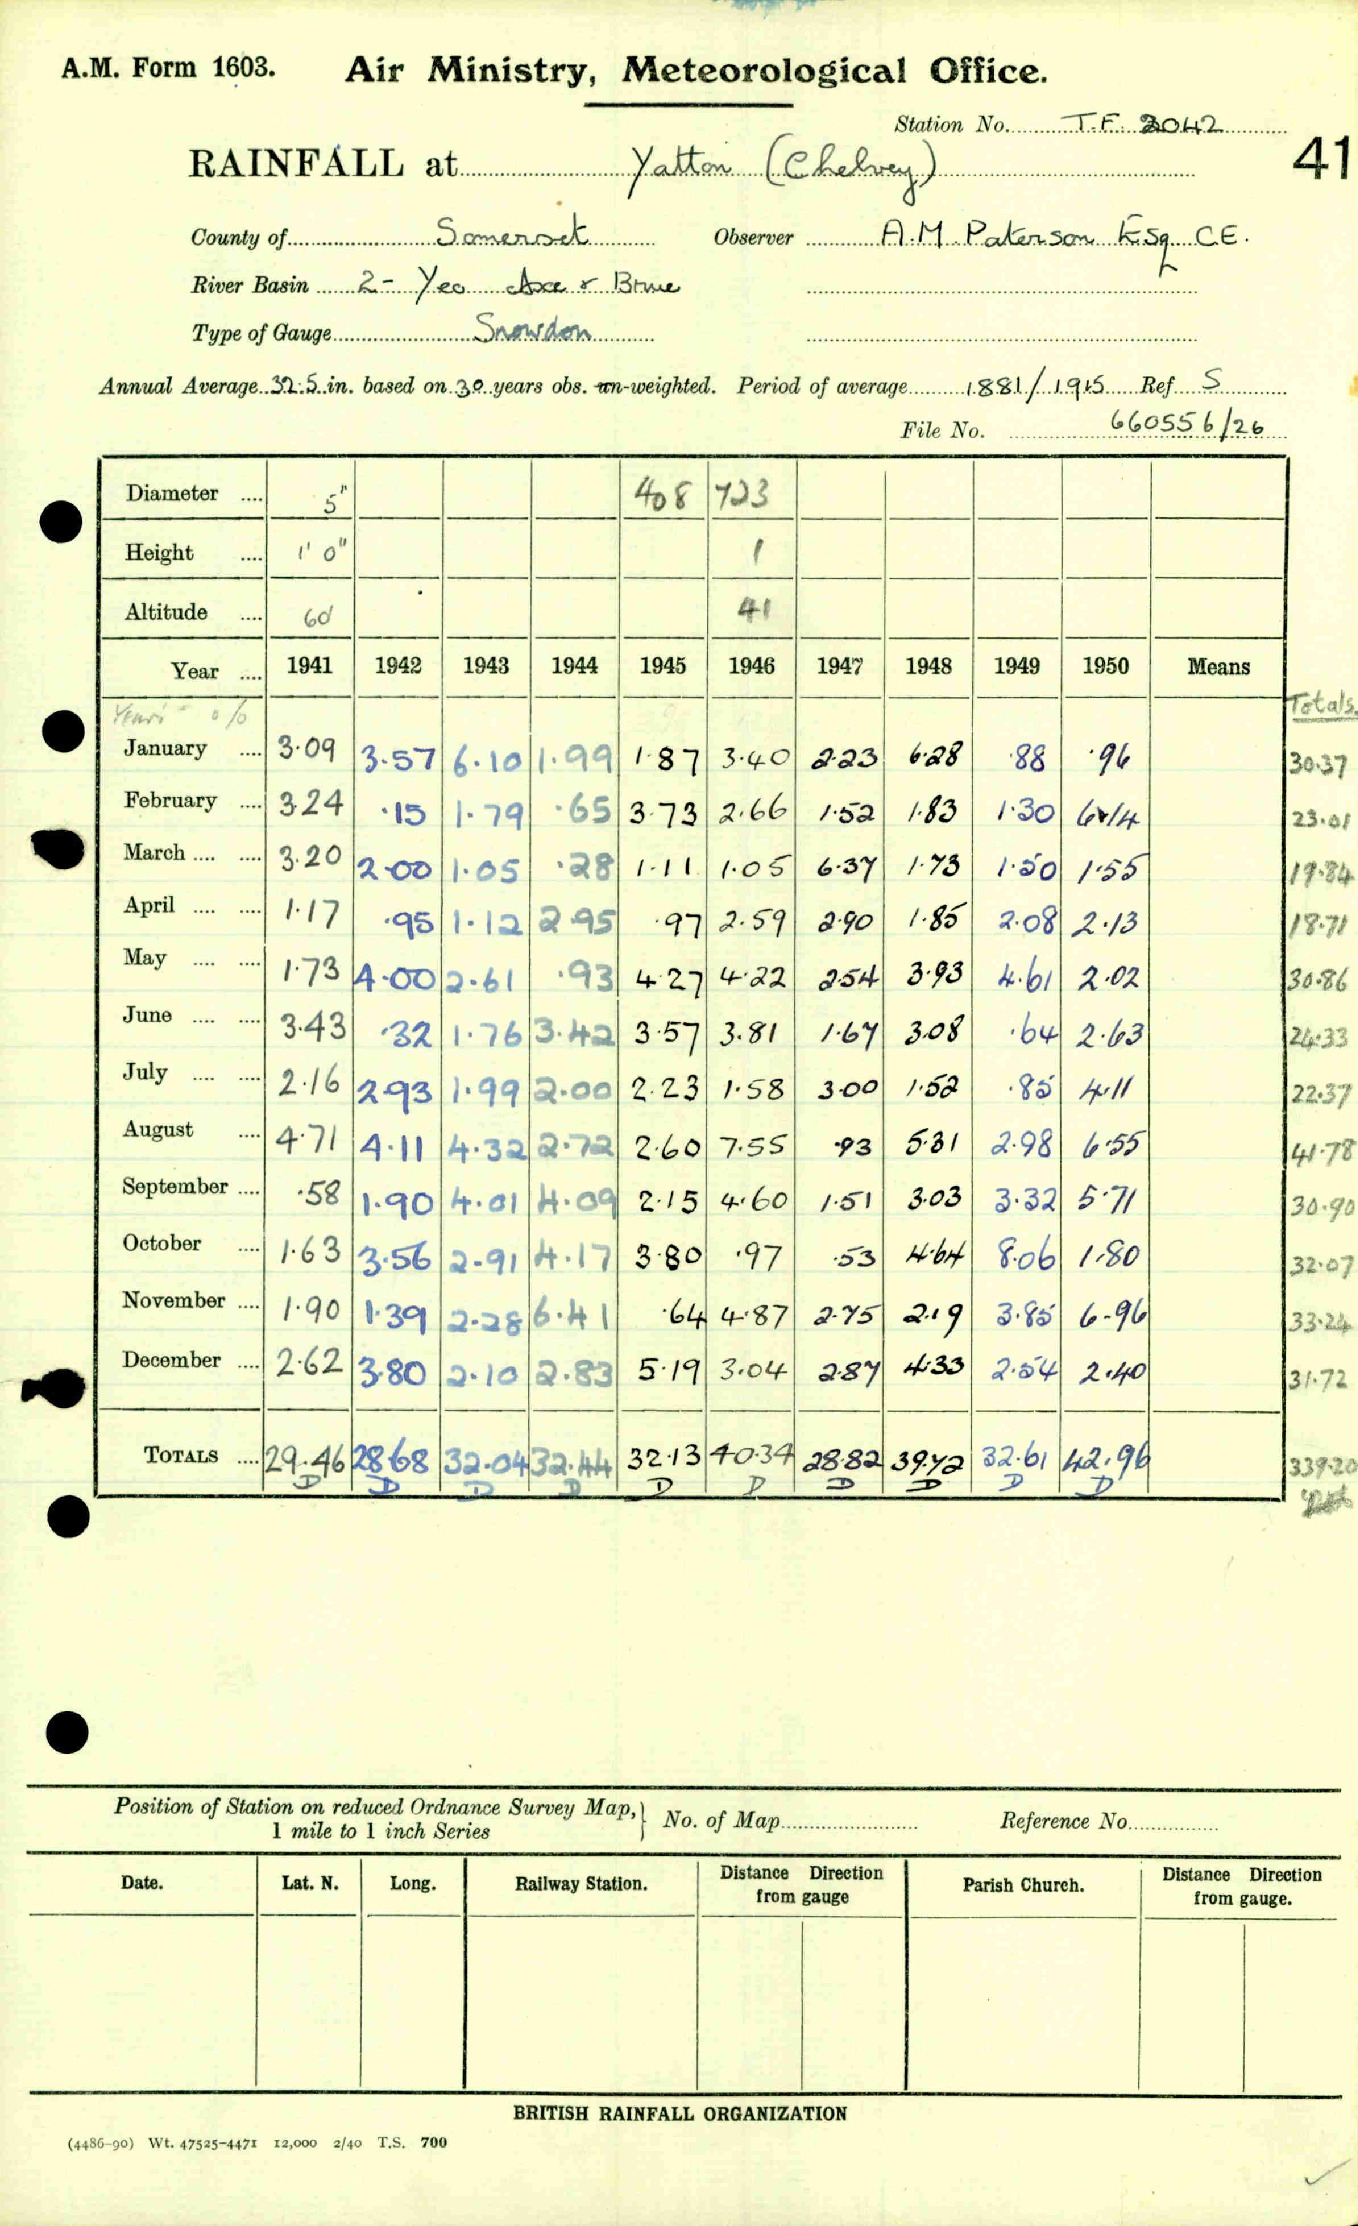 A.M. Form 1603. Air Ministry, Meteorological Office.
Station No. T.F. 2042
41
RAINFALL at Yatton (Chelvey)
County of Somerset Observer A.M. Paterson Esq C.E.
River Basin 2- Yeo Axe & Brue
Type of Gauge Snowdon
Annual Average 32.5 in. based on 30 years obs. un-weighted. Period of average 1881/1915 Ref S
File No. 660556/26
Diameter 5" 408 723
Height 1' 0" 1
Altitude 60 41
Year 1941 1942 1943 1944 1945 1946 1947 1948 1949 1950 Means
Totals.
January 3.09 3.57 6.10 1.99 1.87 3.40 2.23 6.28 .88 .96 30.37
February 3.24 .15 1.79 .65 3.73 2.66 1.52 1.83 1.30 6.14 23.01
March 3.20 2.00 1.05 .28 1.11 1.05 6.37 1.73 1.50 1.55 19.84
April 1.17 .95 1.12 2.95 .97 2.59 2.90 1.85 2.08 2.13 18.71
May 1.73 4.00 2.61 .93 4.27 4.22 2.54 3.93 4.61 2.02 30.86
June 3.43 .32 1.76 3.42 3.57 3.81 1.67 3.08 .64 2.63 24.33
July 2.16 2.93 1.99 2.00 2.23 1.58 3.00 1.52 .85 4.11 22.37
August 4.71 4.11 4.32 2.72 2.60 7.55 .93 5.31 2.98 6.55 41.78
September .58 1.90 4.01 4.09 2.15 4.60 1.51 3.03 3.32 5.71 30.90
October 1.63 3.56 2.91 4.17 3.80 .97 .53 4.64 8.06 1.80 32.07
November 1.90 1.39 2.28 6.41 .64 4.87 2.75 2.19 3.85 6.96 33.24
December 2.62 3.80 2.10 2.83 5.19 3.04 2.87 4.33 2.54 2.40 31.72
TOTALS 29.46 28.68 32.04 32.44 32.13 40.34 28.82 39.72 32.61 42.96 339.20
D D D D D D D D D D
Position of Station on reduced Ordnance Survey Map, 1 mile to 1 inch Series } No. of Map Reference No.
Date. Lat. N. Long. Railway Station. Distance Direction from gauge Parish Church. Distance Direction from gauge.
BRITISH RAINFALL ORGANIZATION
(4486-90) Wt. 47525-4471 12,000 2/40 T.S. 700